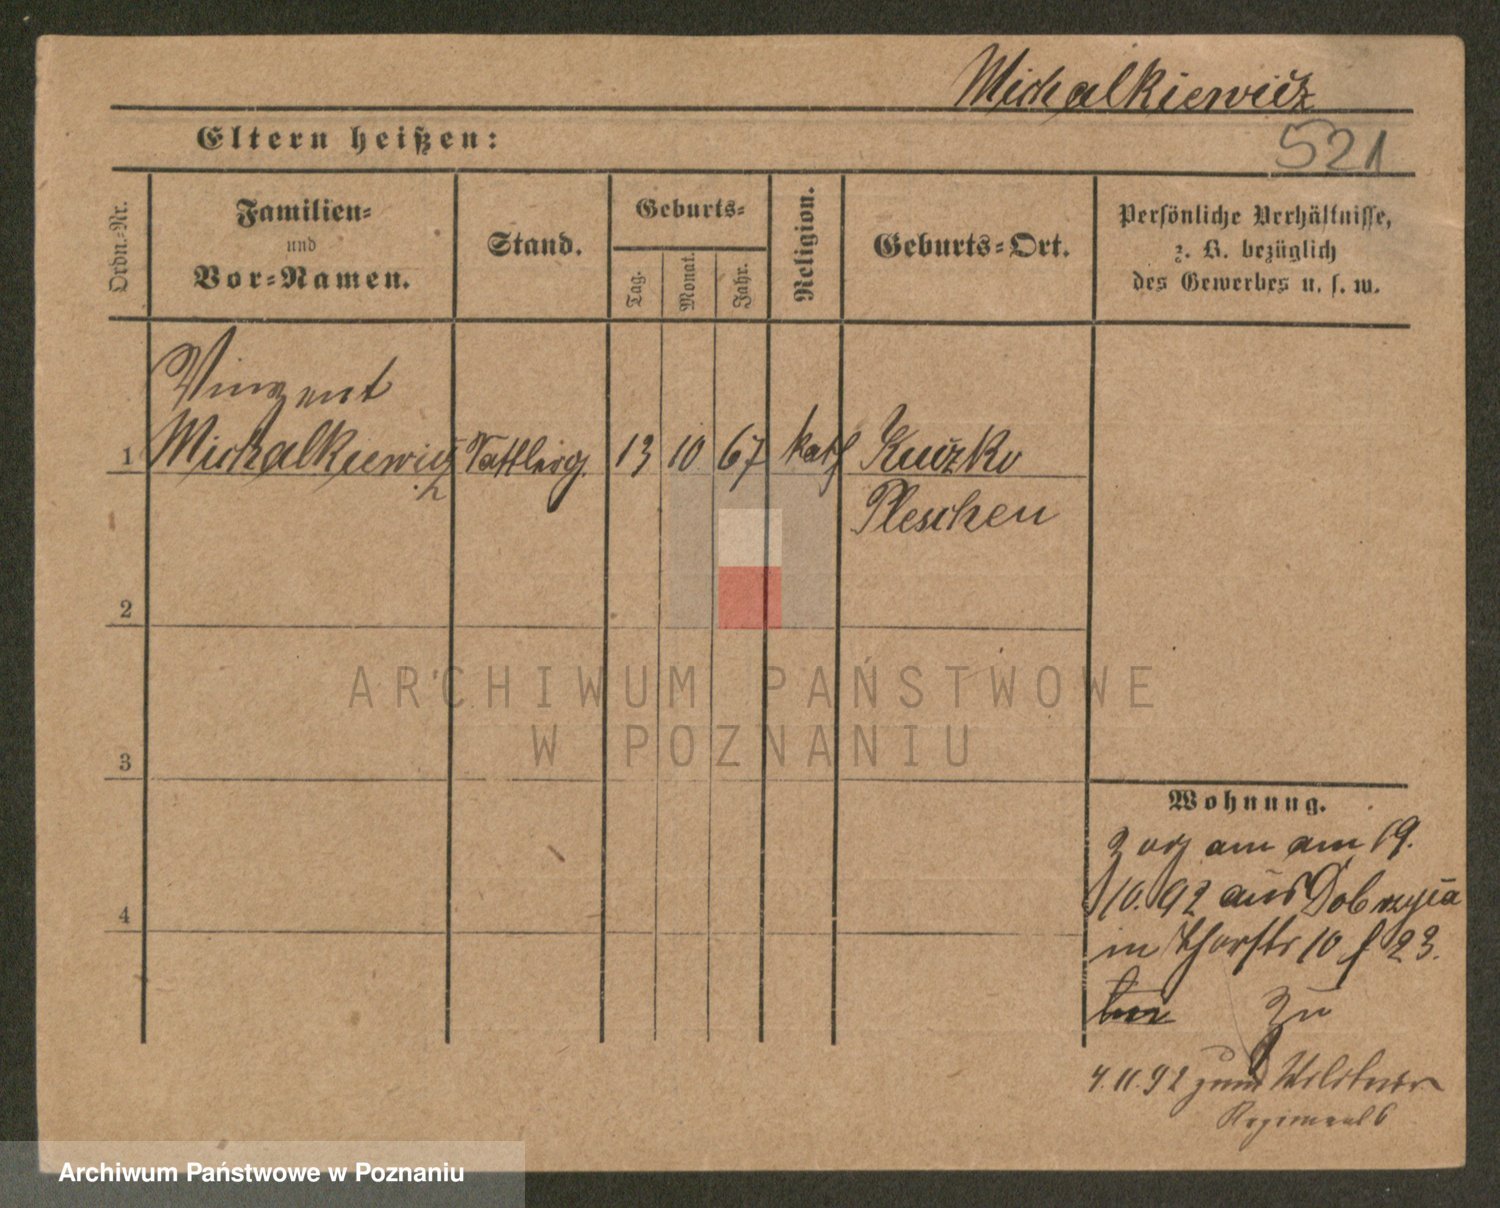 Michalkiewicz
Eltern heißen:
521
Ordn.-Nr.
Familien-
und
Vor-Namen.
Stand.
Geburts-
Tag.
Monat.
Jahr.
Religion.
Geburts-Ort.
Persönliche Verhältnisse,
z. B. bezüglich
des Gewerbes u. s. w.
Vinzent
1 Michalkiewicz Sattlerg. 13 10 67 kath Kuczko
Pleschen
2
3
4
ARCHIWUM PAŃSTWOWE
W POZNANIU
Wohnung.
zog am am 19.
10.92 aus Dobrzyca
in 10 23.
zu
4.11.92 zum Militär
Regiment 6
Archiwum Państwowe w Poznaniu